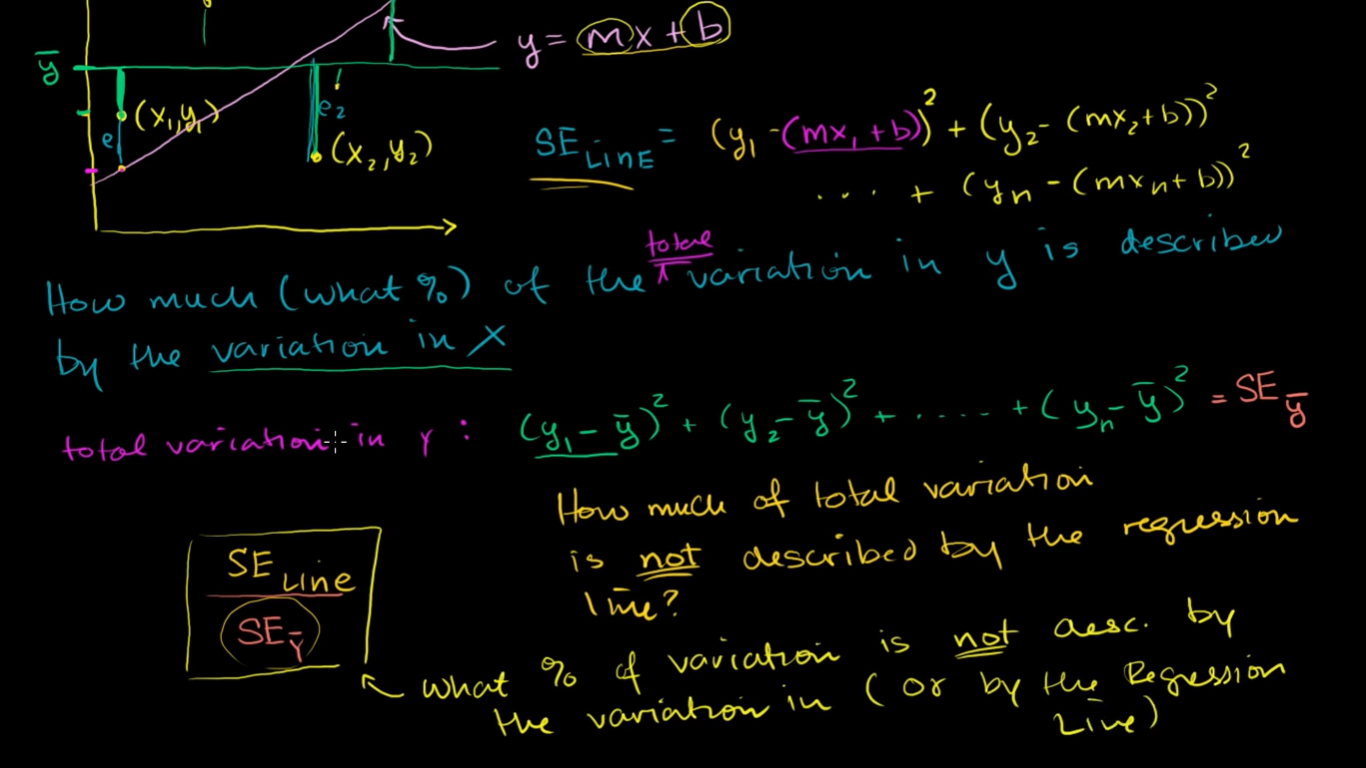 y = mx + b
ȳ
(x₁, y₁)
e₂
(x₂, y₂)
SE LINE = (y₁ - (mx₁ + b))² + (y₂ - (mx₂ + b))²
.... + (yₙ - (mxₙ + b))²
total
How much (what %) of the variation in y is described
by the variation in x
total variation in y : (y₁ - ȳ)² + (y₂ - ȳ)² + ..... + (yₙ - ȳ)² = SE ȳ
How much of total variation
is not described by the regression
line?
SE LINE
SE Ȳ
What % of variation is not desc. by
the variation in (or by the Regression
Line)